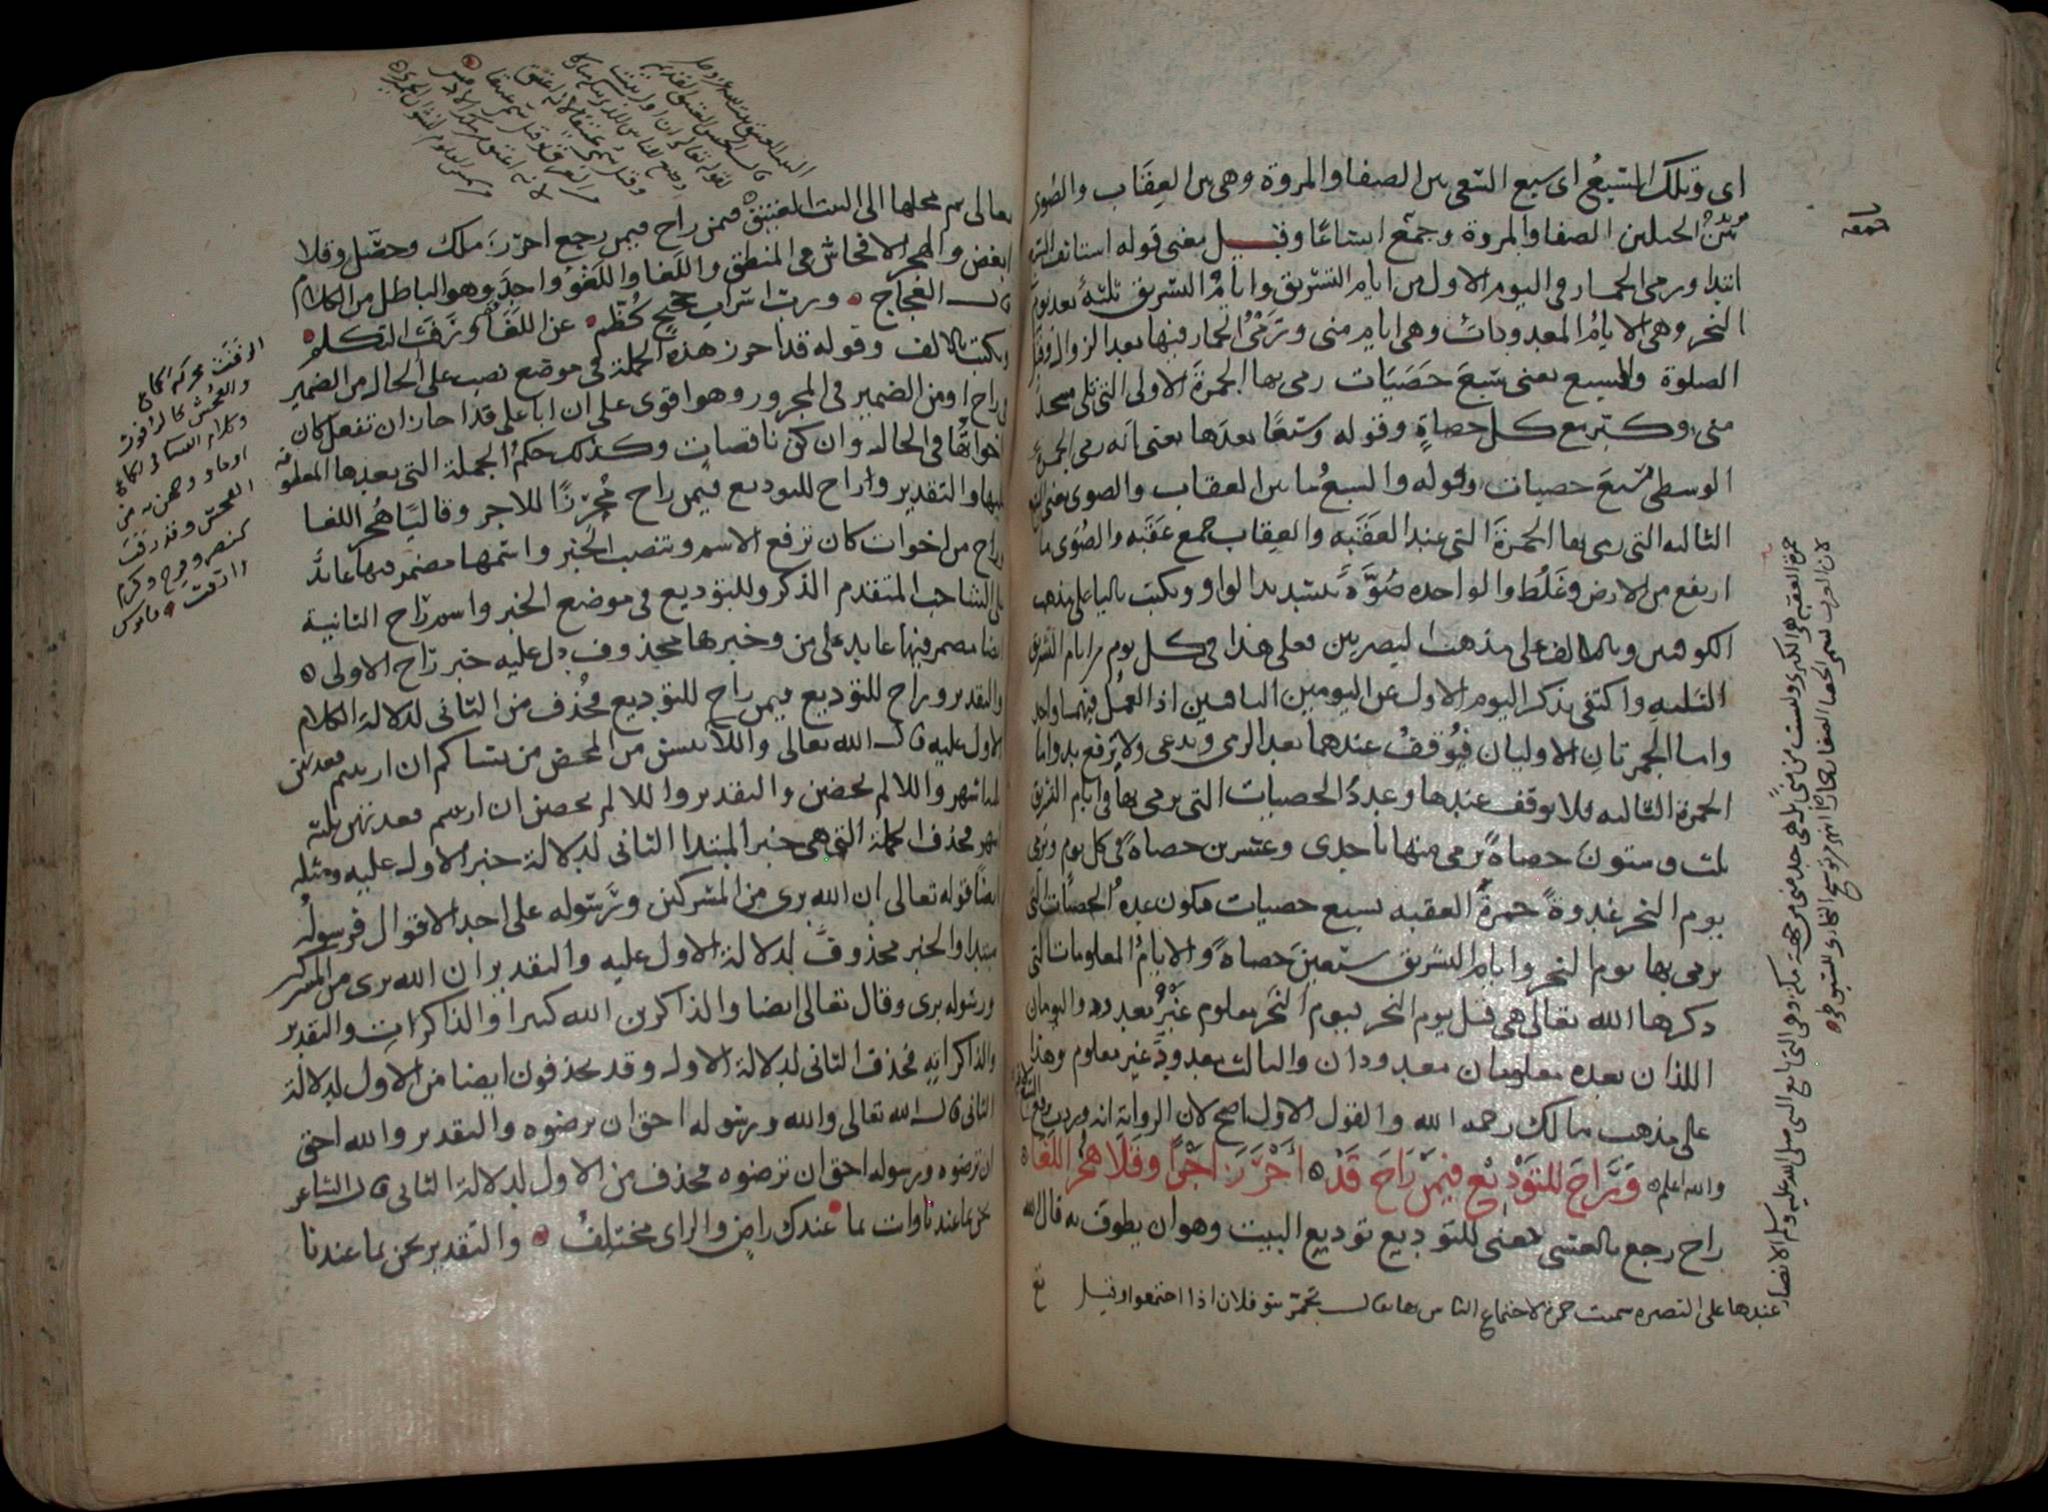 اى وتلك السبع اى سبع السعى بين الصفا والمروة وهى بين العقاب والصوى
الجبلين الصفا والمروة وجمع اسباعا وقيل يعنى قوله استانف
ابتدا ورمى الجمار فى اليوم الاول من ايام التشريق وايام التشريق ثلثة بعد يوم
النحر وهى الايام المعدودات وهى ايام منى وترمى الجمار فيها بعد الزوال وقبل
الصلوة والسبع يعنى سبع حصيات رمى بها الجمرة الاولى التى تلى مسجد
منى وكبر مع كل حصاة وقوله وسبعا بعدها يعنى انه رمى الجمرة
الوسطى سبع حصيات وقوله والسبع ما بين العقاب والصوى يعنى
الثالثه التى رمى بها الجمرة التى عند العقبه والعقاب جمع عقبه والصوى ما
ارتفع من الارض وغلظ والواحده صوة بتشديد الواو ويكتب باليا على مذهب
الكوفيين وبالالف على مذهب البصريين فعلى هذا فى كل يوم من ايام التشريق
الثلثه واكتفى بذكر اليوم الاول عن اليومين الباقيين اذ العمل فيهما واحد
واما الجمرتان الاوليان فيوقف عندهما بعد الرمى ويدعى ولا يرفع يديه واما
الجمرة الثالثه فلا يوقف عندها وعدد الحصيات التى يرمى بها فى ايام التشريق
ثلث وستون حصاة يرمى منها باحدى وعشرين حصاة فى كل يوم ويرمى
يوم النحر غدوة جمرة العقبه بسبع حصيات فيكون عدة الحصيات التى
يرمى بها يوم النحر وايام التشريق سبعين حصاة والايام المعلومات التى
ذكرها الله تعالى هى قبل يوم النحر فيوم النحر معلوم غير معدود واليومان
اللذان بعده معلومان معدودان والثالث معدود غير معلوم وهذا
على مذهب مالك رحمه الله والقول الاول اصح لان الرواية انه
والله اعلم وراح للتوديع فيمن راح قد احرز اجرا وقلا هجر اللغا
راح رجع بالعشى يعنى للتوديع توديع البيت وهو ان يطوف به قال الله
عندها على البصره سميت جمرة لاجتماع الناس بها يقال تجمر بنو فلان اذا اجتمعوا وقيل
جمرة العقبة هى الكبرى وليست من منى بل هى حد منى من جهة مكة وهى التى بايع النبى صلى الله عليه وسلم الانصار
لان العرب تسمى الحصا الصغار جمارا
تعالى ثم محلها الى البيت العتيق فيمن راح فيمن رجع احرز ملك وحصل وقلا
ابغض والهجر الافحاش فى المنطق واللغا واللغو واحد وهو الباطل من الكلام
قال العجاج ورب اسراب حجيج كظم عن اللغا ورفث التكلم
ويكتب بالالف وقوله قد احرز هذه الجملة فى موضع نصب على الحال من الضمير
فى راح او من الضمير فى المجرور وهو اقوى على ان ابا على قد اجاز ان تفعل كان
اخواتها فى الحال وان كن ناقصات وكذلك حكم الجملة التى بعدها المعطوفة
عليها والتقدير وراح للتوديع فيمن راح محرزا للاجر وقاليا هجر اللغا
وراح من اخوات كان ترفع الاسم وتنصب الخبر واسمها مضمر فيها عائد
على الشاحب المتقدم الذكر وللتوديع فى موضع الخبر واسم راح الثانية
ايضا مضمر فيها عايد على من وخبرها محذوف دل عليه خبر راح الاولى
والتقدير وراح للتوديع فيمن راح للتوديع فحذف من الثانى لدلالة الكلام
الاول عليه قال الله تعالى واللائى يئسن من المحيض من نسائكم ان ارتبتم فعدتهن
ثلثة اشهر واللائى لم يحضن والتقدير واللائى لم يحضن ان ارتبتم فعدتهن ثلثه
اشهر فحذف الجملة التى هى خبر المبتدا الثانى لدلالة خبر الاول عليه ومثله
ايضا قوله تعالى ان الله برى من المشركين ورسوله على احد الاقوال فرسوله
مبتدا والخبر محذوف لدلالة الاول عليه والتقدير ان الله برى من المشركين
ورسوله برى وقال تعالى ايضا والذاكرين الله كثيرا والذاكرات والتقدير
والذاكراته فحذف الثانى لدلالة الاول وقد يحذفون ايضا من الاول لدلالة
الثانى قال الله تعالى والله ورسوله احق ان يرضوه والتقدير والله احق
ان يرضوه ورسوله احق ان يرضوه فحذف من الاول لدلالة الثانى قال الشاعر
نحن بما عندنا وانت بما عندك راض والراى مختلف والتقدير نحن بما عندنا
الرفث محركة الجماع
والفحش كالرفوث
وكلام النساء فى الجماع
او ما ووجهن به من
الفحش وقد رفث
كنصر وفرح وكرم
وارفث قاموس